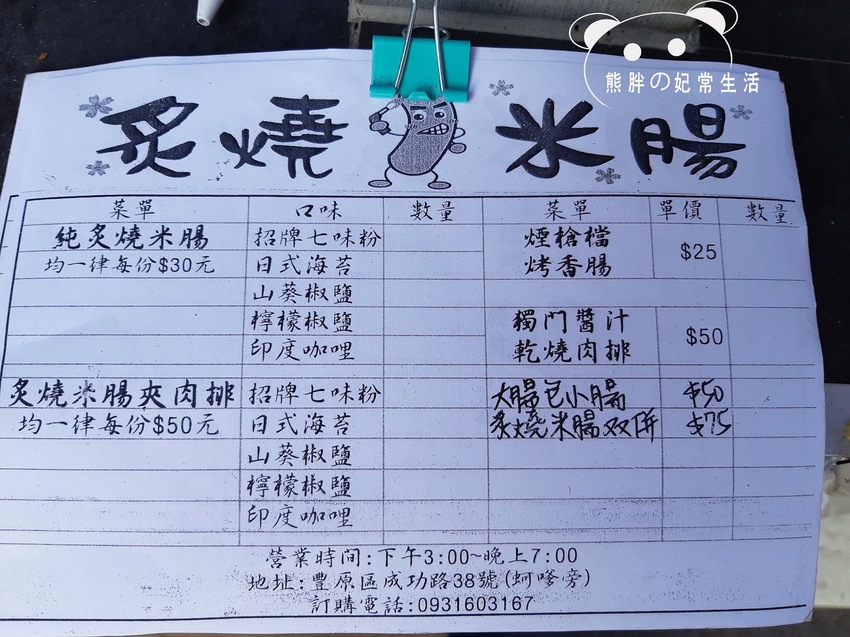 熊胖の妃常生活
炙燒米腸
菜單 口味 數量 菜單 單價 數量
純炙燒米腸 招牌七味粉 煙槍檔 $25
均一律每份$30元 日式海苔 烤香腸
山葵椒鹽
檸檬椒鹽 獨門醬汁 $50
印度咖哩 乾燒肉排
炙燒米腸夾肉排 招牌七味粉 大腸包小腸 $50
均一律每份$50元 日式海苔 炙燒米腸双併 $75
山葵椒鹽
檸檬椒鹽
印度咖哩
營業時間:下午3:00~晚上7:00
地址:豐原區成功路38號(蚵嗲旁)
訂購電話:0931603167